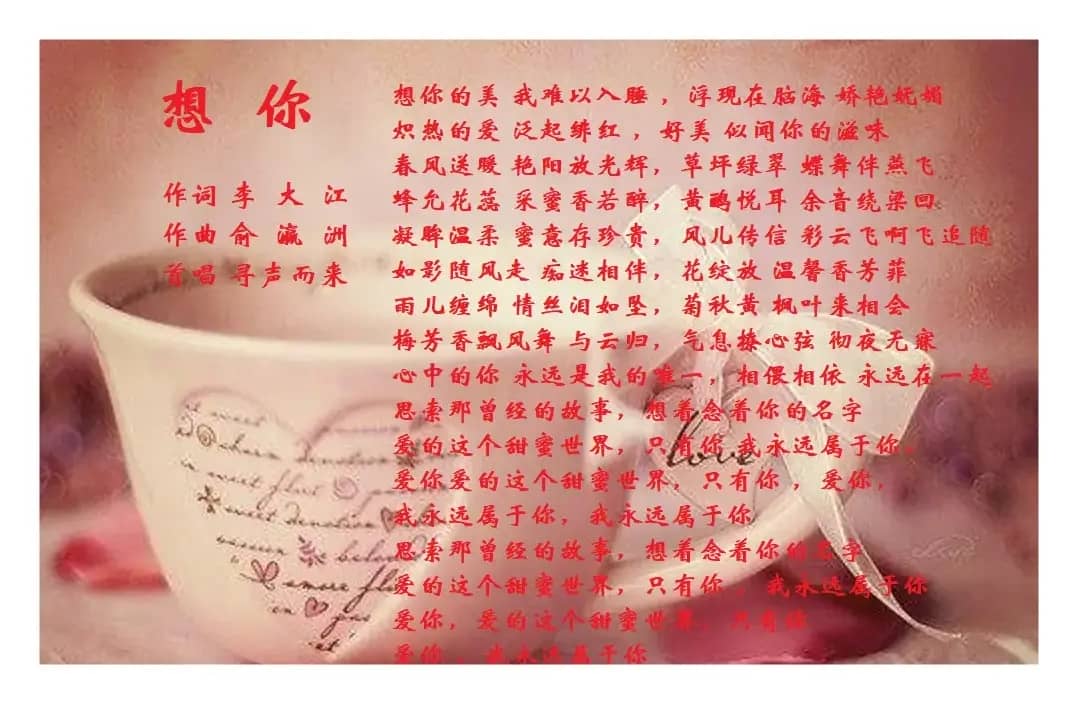 想 你
作词 李 大 江
作曲 俞 瀛 洲
首唱 寻声而来
想你的美 我难以入睡 ，浮现在脑海 娇艳妩媚
炽热的爱 泛起绯红 ，好美 似闻你的滋味
春风送暖 艳阳放光辉，草坪绿翠 蝶舞伴燕飞
蜂允花蕊 采蜜香若醉，黄鹂悦耳 余音绕梁回
凝眸温柔 蜜意存珍贵，风儿传信 彩云飞啊飞追随
如影随风走 痴迷相伴，花绽放 温馨香芳菲
雨儿缠绵 情丝泪如坠，菊秋黄 枫叶来相会
梅芳香飘风舞 与云归，气息撩心弦 彻夜无寐
心中的你 永远是我的唯一，相偎相依 永远在一起
思索那曾经的故事，想着念着你的名字
爱的这个甜蜜世界，只有你 我永远属于你，
爱你爱的这个甜蜜世界，只有你 ，爱你，
我永远属于你，我永远属于你
思索那曾经的故事，想着念着你的名字
爱的这个甜蜜世界，只有你 ，我永远属于你
爱你，爱的这个甜蜜世界，只有你
爱你 ，我永远属于你
love